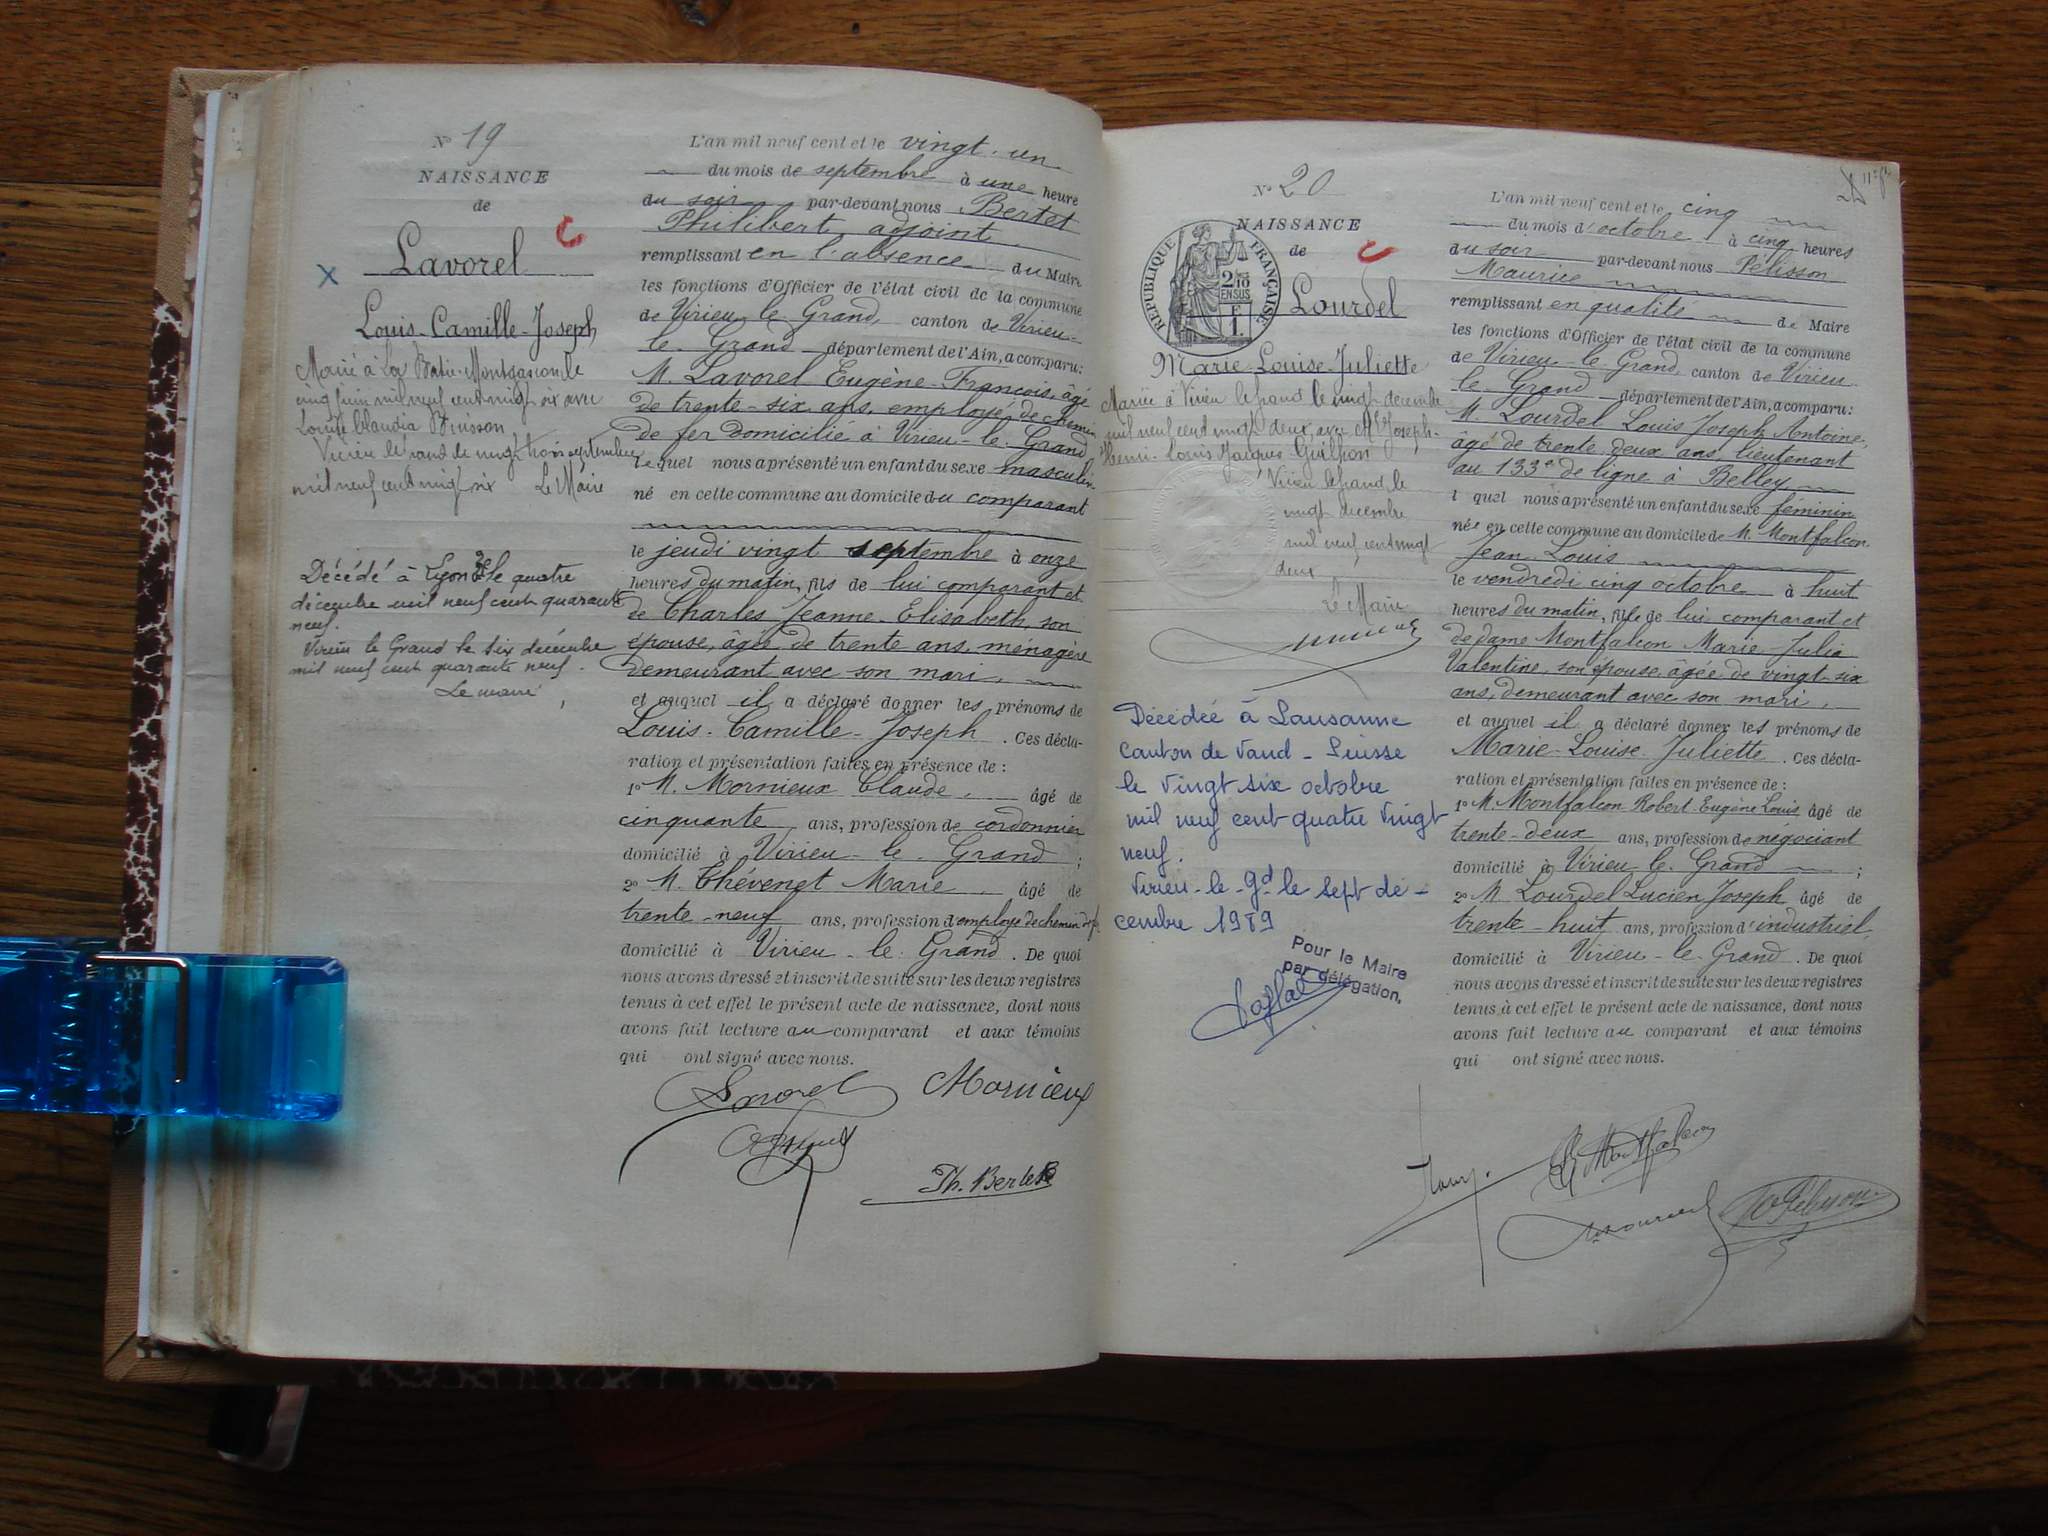 N° 19
NAISSANCE
de
Lavorel
Louis-Camille-Joseph
Marié à La Batie-Montgascon le
cinq juin mil neuf cent vingt six avec
Louise Claudia Buisson
Virieu le Grand le vingt trois septembre
mil neuf cent vingt six Le Maire
Décédé à Lyon 3e le quatre
décembre mil neuf cent quarante
neuf.
Virieu le Grand le six décembre
mil neuf cent quarante neuf.
Le maire,
L'an mil neuf cent et le vingt-un
du mois de septembre à une heure
du soir par-devant nous Bertet
Philibert, adjoint
remplissant en l'absence du Maire
les fonctions d'Officier de l'état civil de la commune
de Virieu-le-Grand, canton de Virieu-
le-Grand département de l'Ain, a comparu:
M. Lavorel Eugène-François, âgé
de trente-six ans, employé de chemin
de fer domicilié à Virieu-le-Grand
lequel nous a présenté un enfant du sexe masculin
né en cette commune au domicile du comparant
le jeudi vingt septembre à onze
heures du matin, fils de lui comparant et
de Charles Jeanne-Elisabeth, son
épouse, âgée de trente ans, ménagère
demeurant avec son mari,
et auquel il a déclaré donner les prénoms de
Louis-Camille-Joseph. Ces décla-
ration et présentation faites en présence de :
1° M. Mornieux Claude, âgé de
cinquante ans, profession de cordonnier
domicilié à Virieu-le-Grand ;
2° M. Chévenet Marie, âgé de
trente-neuf ans, profession d'employé de chemin de fer
domicilié à Virieu-le-Grand. De quoi
nous avons dressé et inscrit de suite sur les deux registres
tenus à cet effet le présent acte de naissance, dont nous
avons fait lecture au comparant et aux témoins
qui ont signé avec nous.
Lavorel Mornieux
Ph. Bertet
N° 20
NAISSANCE
de
REPUBLIQUE FRANÇAISE
2/10
EN SUS
F
1.
Lourdel
Marie-Louise-Juliette
Mariée à Virieu le grand le vingt décembre
mil neuf cent vingt deux, avec Mr Joseph-
Henri-Louis Jacques Guilhon
Virieu le grand le
vingt décembre
mil neuf cent vingt
deux
Le Maire
Décédée à Lausanne
canton de Vaud - Suisse
le vingt six octobre
mil neuf cent quatre vingt
neuf.
Virieu-le-Gd le sept dé-
cembre 1989
Pour le Maire
par délégation,
L'an mil neuf cent et le cinq
du mois d'octobre à cinq heures
du soir par-devant nous Pélisson
Maurice
remplissant en qualité de Maire
les fonctions d'Officier de l'état civil de la commune
de Virieu-le-Grand, canton de Virieu-
le-Grand département de l'Ain, a comparu:
M. Lourdel Louis Joseph Antoine,
âgé de trente-deux ans, lieutenant
au 133e de ligne à Belley
lequel nous a présenté un enfant du sexe féminin
née en cette commune au domicile de M. Montfalcon
Jean-Louis
le vendredi cinq octobre à huit
heures du matin, fille de lui comparant et
de dame Montfalcon Marie-Julia
Valentine, son épouse, âgée de vingt-six
ans, demeurant avec son mari,
et auquel il a déclaré donner les prénoms de
Marie-Louise-Juliette. Ces décla-
ration et présentation faites en présence de :
1° M. Montfalcon Robert Eugène Louis âgé de
trente-deux ans, profession de négociant
domicilié à Virieu-le-Grand ;
2° M. Lourdel Lucien Joseph âgé de
trente-huit ans, profession d'industriel,
domicilié à Virieu-le-Grand. De quoi
nous avons dressé et inscrit de suite sur les deux registres
tenus à cet effet le présent acte de naissance, dont nous
avons fait lecture au comparant et aux témoins
qui ont signé avec nous.
Montfalcon